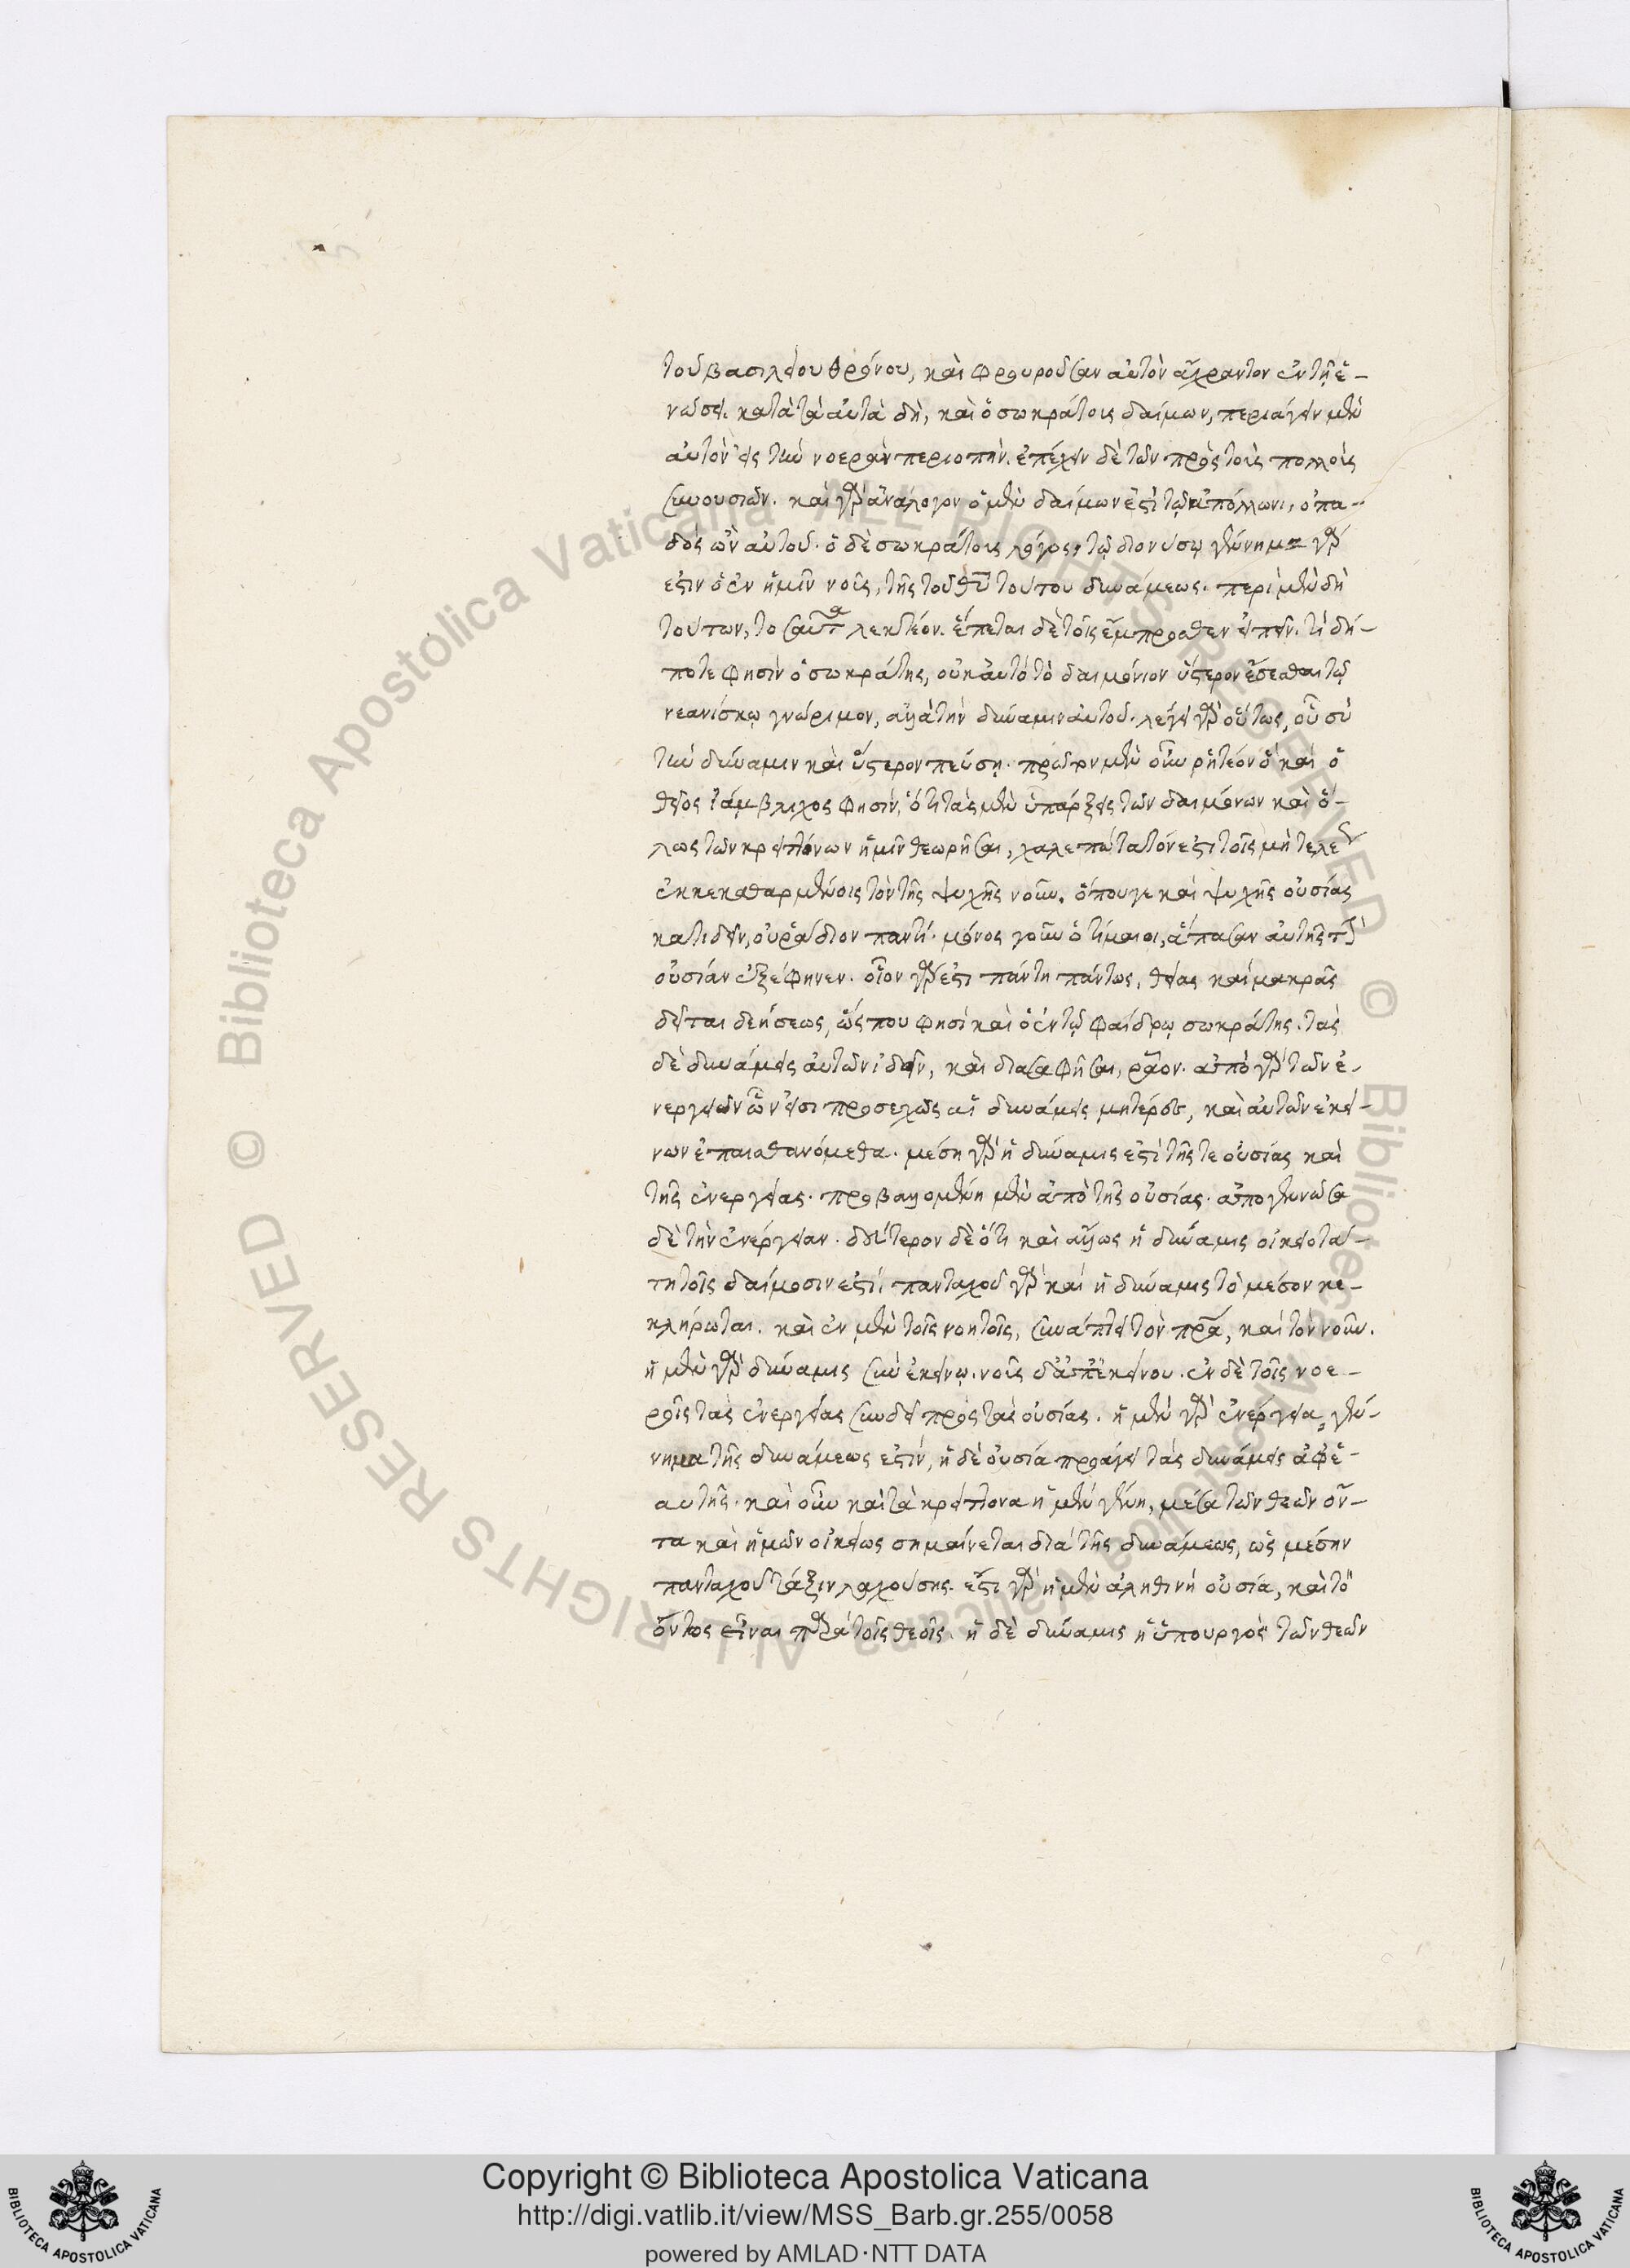 τοῦ βασιλείου θρόνου, καὶ φρουροῦσαν αὐτὸν ἄχραντον ἐν τῇ ἑ-
νώσει. κατὰ τὰ αὐτὰ δὴ, καὶ ὁ σωκράτους δαίμων, περιάγειν μὲν
αὐτὸν εἰς τὴν νοερὰν περιοπήν. ἐπέχειν δὲ τῶν πρὸς τοὺς πολλοὺς
συνουσιῶν. καὶ γὰρ ἀνάλογον ὁ μὲν δαίμων ἐστὶ τῷ ἀπόλλωνι, ὀπα-
δὸς ὢν αὐτοῦ. ὁ δὲ σωκράτους λόγος, τῷ διονύσῳ γέννημα γάρ
ἐστιν ὁ ἐν ἡμῖν νοῦς, τῆς τοῦ θεοῦ τούτου δυνάμεως. περὶ μὲν δὴ
τούτων, τοσαῦτα λεκτέον. ἕπεται δὲ τοῖς ἔμπροσθεν εἰπεῖν. τί δή-
ποτε φησὶν ὁ σωκράτης, οὐκ αὐτὸ τὸ δαιμόνιον ὕστερον ἔσεσθαι τῷ
νεανίσκῳ γνώριμον, ἀλλὰ τὴν δύναμιν αὐτοῦ. λέγει γὰρ οὕτως, οὗ σὺ
τὴν δύναμιν καὶ ὕστερον πεύσῃ. πρῶτον μὲν οὖν ῥητέον ὃ καὶ ὁ
θεῖος ἰάμβλιχος φησὶν, ὅτι τὰς μὲν ὑπάρξεις τῶν δαιμόνων καὶ ὅ-
λως τῶν κρειττόνων ἡμῖν θεωρῆσαι, χαλεπώτατόν ἐστι τοῖς μὴ τελείως
ἐκκεκαθαρμένοις τὸν τῆς ψυχῆς νοῦν. ὅπου γε καὶ ψυχῆς οὐσίας
κατιδεῖν, οὐ ῥᾴδιον παντί. μόνος γοῦν ὁ τίμαιος, ἅπασαν αὐτῆς τὴν
οὐσίαν ἐξέφηνεν. οἷον γάρ ἐστι πάντη πάντως, θείας καὶ μακρᾶς
δεῖται δεήσεως, ὥς που φησὶ καὶ ὁ ἐν τῷ φαίδρῳ σωκράτης. τὰς
δὲ δυνάμεις αὐτῶν ἰδεῖν, καὶ διασαφῆσαι, ῥᾷον. ἀπὸ γὰρ τῶν ἐ-
νεργειῶν ὧν εἰσι προσεχῶς αἱ δυνάμεις μητέρες, καὶ αὐτῶν ἐκεί-
νων ἐπαισθανόμεθα. μέση γὰρ ἡ δύναμις ἐστὶ τῆς τε οὐσίας καὶ
τῆς ἐνεργείας. προβαλλομένη μὲν ἀπὸ τῆς οὐσίας. ἀπογεννῶσα
δὲ τὴν ἐνέργειαν. δεύτερον δὲ ὅτι καὶ ἄλλως ἡ δύναμις οἰκειοτά-
τη τοῖς δαίμοσιν ἐστί. πανταχοῦ γὰρ καὶ ἡ δύναμις τὸ μέσον κε-
κλήρωται. καὶ ἐν μὲν τοῖς νοητοῖς, συνάπτει τὸν πατέρα, καὶ τὸν νοῦν.
ἡ μὲν γὰρ δύναμις σὺν ἐκείνῳ. νοῦς δ' ἀπ' ἐκείνου. ἐν δὲ τοῖς νοε-
ροῖς τὰς ἐνεργείας συνδεῖ πρὸς τὰς οὐσίας. ἡ μὲν γὰρ ἐνέργεια, γέν-
νημα τῆς δυνάμεως ἐστίν, ἡ δὲ οὐσία προάγει τὰς δυνάμεις ἀφ' ἑ-
αυτῆς. καὶ οὖν καὶ τὰ κρείττονα ἡμῶν γένη, μέσα τῶν θεῶν ὄν-
τα καὶ ἡμῶν οἰκείως σημαίνεται διὰ τῆς δυνάμεως, ὡς μέσην
πανταχοῦ τάξιν λαχούσης. ἔστι γὰρ ἡ μὲν ἀληθινὴ οὐσία, καὶ τὸ
ὄντως εἶναι παρὰ τοῖς θεοῖς. ἡ δὲ δύναμις ἡ ὑπουργὸς τῶν θεῶν
Copyright © Biblioteca Apostolica Vaticana
http://digi.vatlib.it/view/MSS_Barb.gr.255/0058
powered by AMLAD·NTT DATA